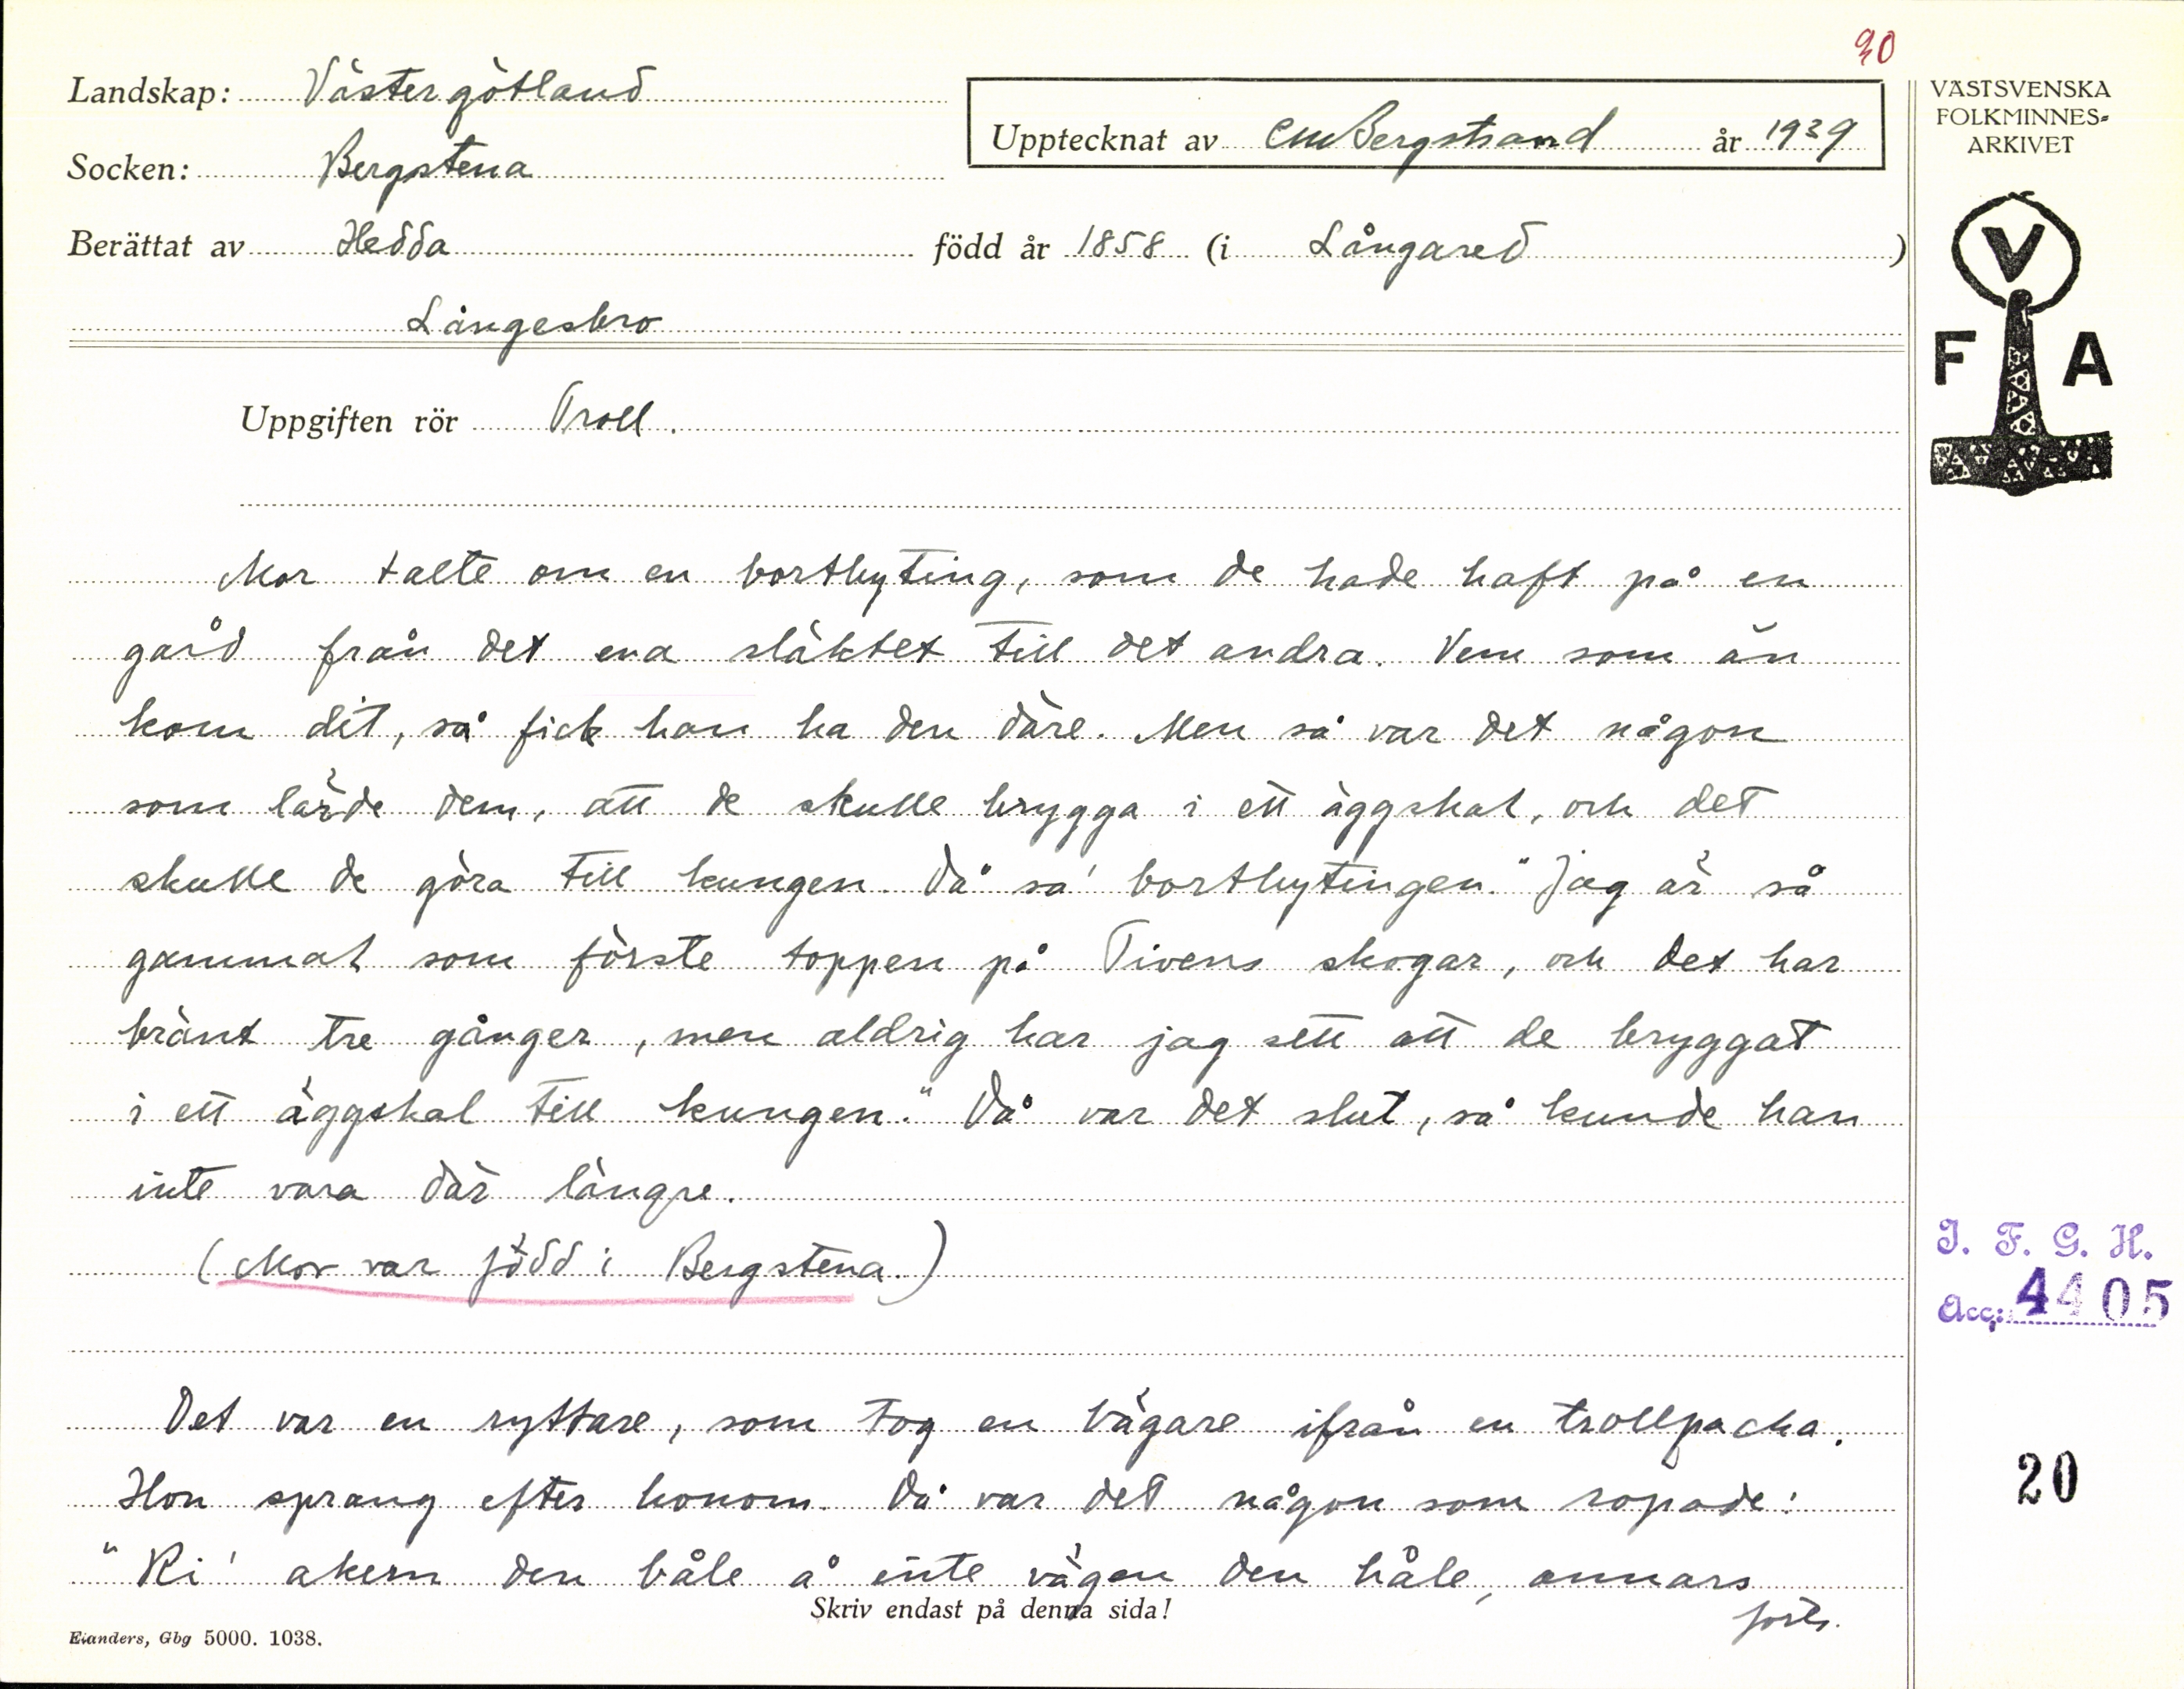 30
Landskap: Västergötland
Upptecknat av CMBergstrand år 1939
Socken: Bergstena
Berättat av Hedda född år 1858 (i Långared)
Långesbro
Uppgiften rör Troll.
Mor talte om en bortbyting, som de hade haft på en
gård från det ena släktet till det andra. Vem som än
kom dit, så fick han ha den däre. Men så var det någon
som lärde dem, att de skulle brygga i ett äggskal, och det
skulle de göra till kungen. Då sa' bortbytingen. "Jag är så
gammal som förste toppen på Tivens skogar, och det har
bränt tre gånger, men aldrig har jag sett att de bryggat
i ett äggskal till kungen." Då var det slut, så kunde han
inte vara där längre.
(Mor var född i Bergstena.)
Det var en ryttare, som tog en bägare ifrån en trollpacka.
Hon sprang efter honom. Då var det någon som ropade:
"Ri' akern den båle å inte vägen den håle, annars
forts.
Skriv endast på denna sida!
Elanders, Gbg 5000. 1038.
VÄSTSVENSKA
FOLKMINNES=
ARKIVET
V
F A
I. F. G. H.
Acc: 4405
20